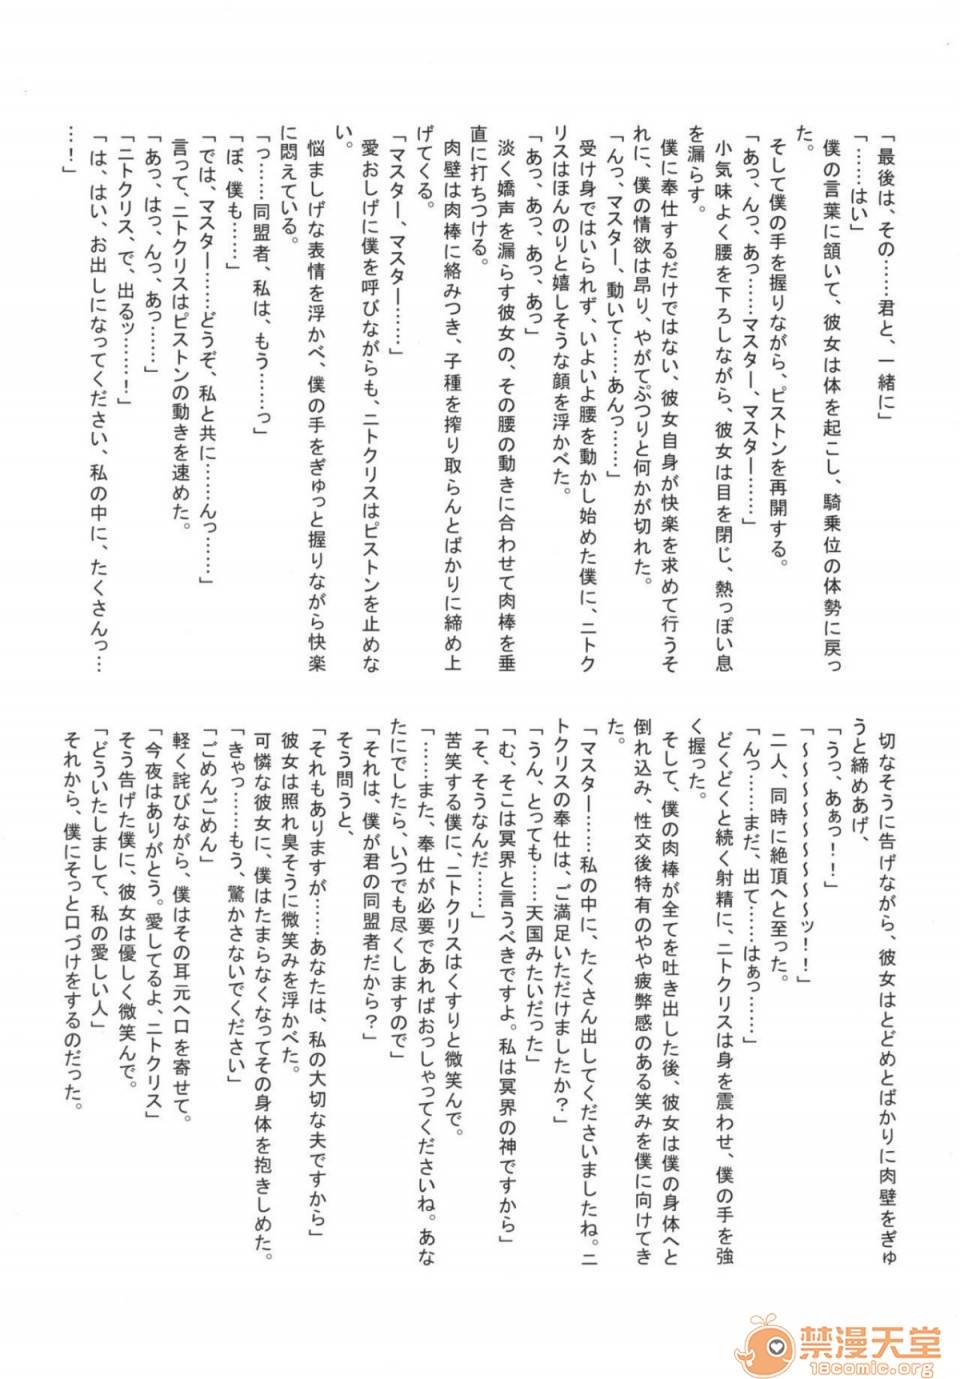 「最後は、その……君と、一緒に」
「……はい」
僕の言葉に頷いて、彼女は体を起こし、騎乗位の体勢に戻っ
た。
そして僕の手を握りながら、ピストンを再開する。
「あっ、んっ、あっ……マスター、マスター……」
小気味よく腰を下ろしながら、彼女は目を閉じ、熱っぽい息
を漏らす。
僕に奉仕するだけではない、彼女自身が快楽を求めて行うそ
れに、僕の情欲は昂り、やがてぷつりと何かが切れた。
「んっ、マスター、動いて……あんっ……」
受け身ではいられず、いよいよ腰を動かし始めた僕に、ニトク
リスはほんのりと嬉しそうな顔を浮かべた。
「あっ、あっ、あっ、あっ」
淡く嬌声を漏らす彼女の、その腰の動きに合わせて肉棒を垂
直に打ちつける。
肉壁は肉棒に絡みつき、子種を搾り取らんとばかりに締め上
げてくる。
「マスター、マスター……」
愛おしげに僕を呼びながらも、ニトクリスはピストンを止めな
い。
悩ましげな表情を浮かべ、僕の手をぎゅっと握りながら快楽
に悶えている。
「っ……同盟者、私は、もう……っ」
「ぼ、僕も……」
「では、マスター……どうぞ、私と共に……んっ……」
言って、ニトクリスはピストンの動きを速めた。
「あっ、はっ、んっ、あっ……」
「ニトクリス、で、出るッ……！」
「は、はい、お出しになってください、私の中に、たくさんっ…
…！」
切なそうに告げながら、彼女はとどめとばかりに肉壁をぎゅ
うと締めあげ、
「うっ、あぁっ！！」
「～～～～～～～～ッ！！」
二人、同時に絶頂へと至った。
「んっ……まだ、出て……はぁっ……」
どくどくと続く射精に、ニトクリスは身を震わせ、僕の手を強
く握った。
そして、僕の肉棒が全てを吐き出した後、彼女は僕の身体へと
倒れ込み、性交後特有のやや疲弊感のある笑みを僕に向けてき
た。
「マスター……私の中に、たくさん出してくださいましたね。ニ
トクリスの奉仕は、ご満足いただけましたか？」
「うん、とっても……天国みたいだった」
「む、そこは冥界と言うべきですよ。私は冥界の神ですから」
「そ、そうなんだ……」
苦笑する僕に、ニトクリスはくすりと微笑んで。
「……また、奉仕が必要であればおっしゃってくださいね。あな
たにでしたら、いつでも尽くしますので」
「それは、僕が君の同盟者だから？」
そう問うと、
「それもありますが……あなたは、私の大切な夫ですから」
彼女は照れ臭そうに微笑みを浮かべた。
可憐な彼女に、僕はたまらなくなってその身体を抱きしめた。
「きゃっ……もう、驚かさないでください」
「ごめんごめん」
軽く詫びながら、僕はその耳元へ口を寄せて。
「今夜はありがとう。愛してるよ、ニトクリス」
そう告げた僕に、彼女は優しく微笑んで。
「どういたしまして、私の愛しい人」
それから、僕にそっと口づけをするのだった。
禁漫天堂
18comic.org